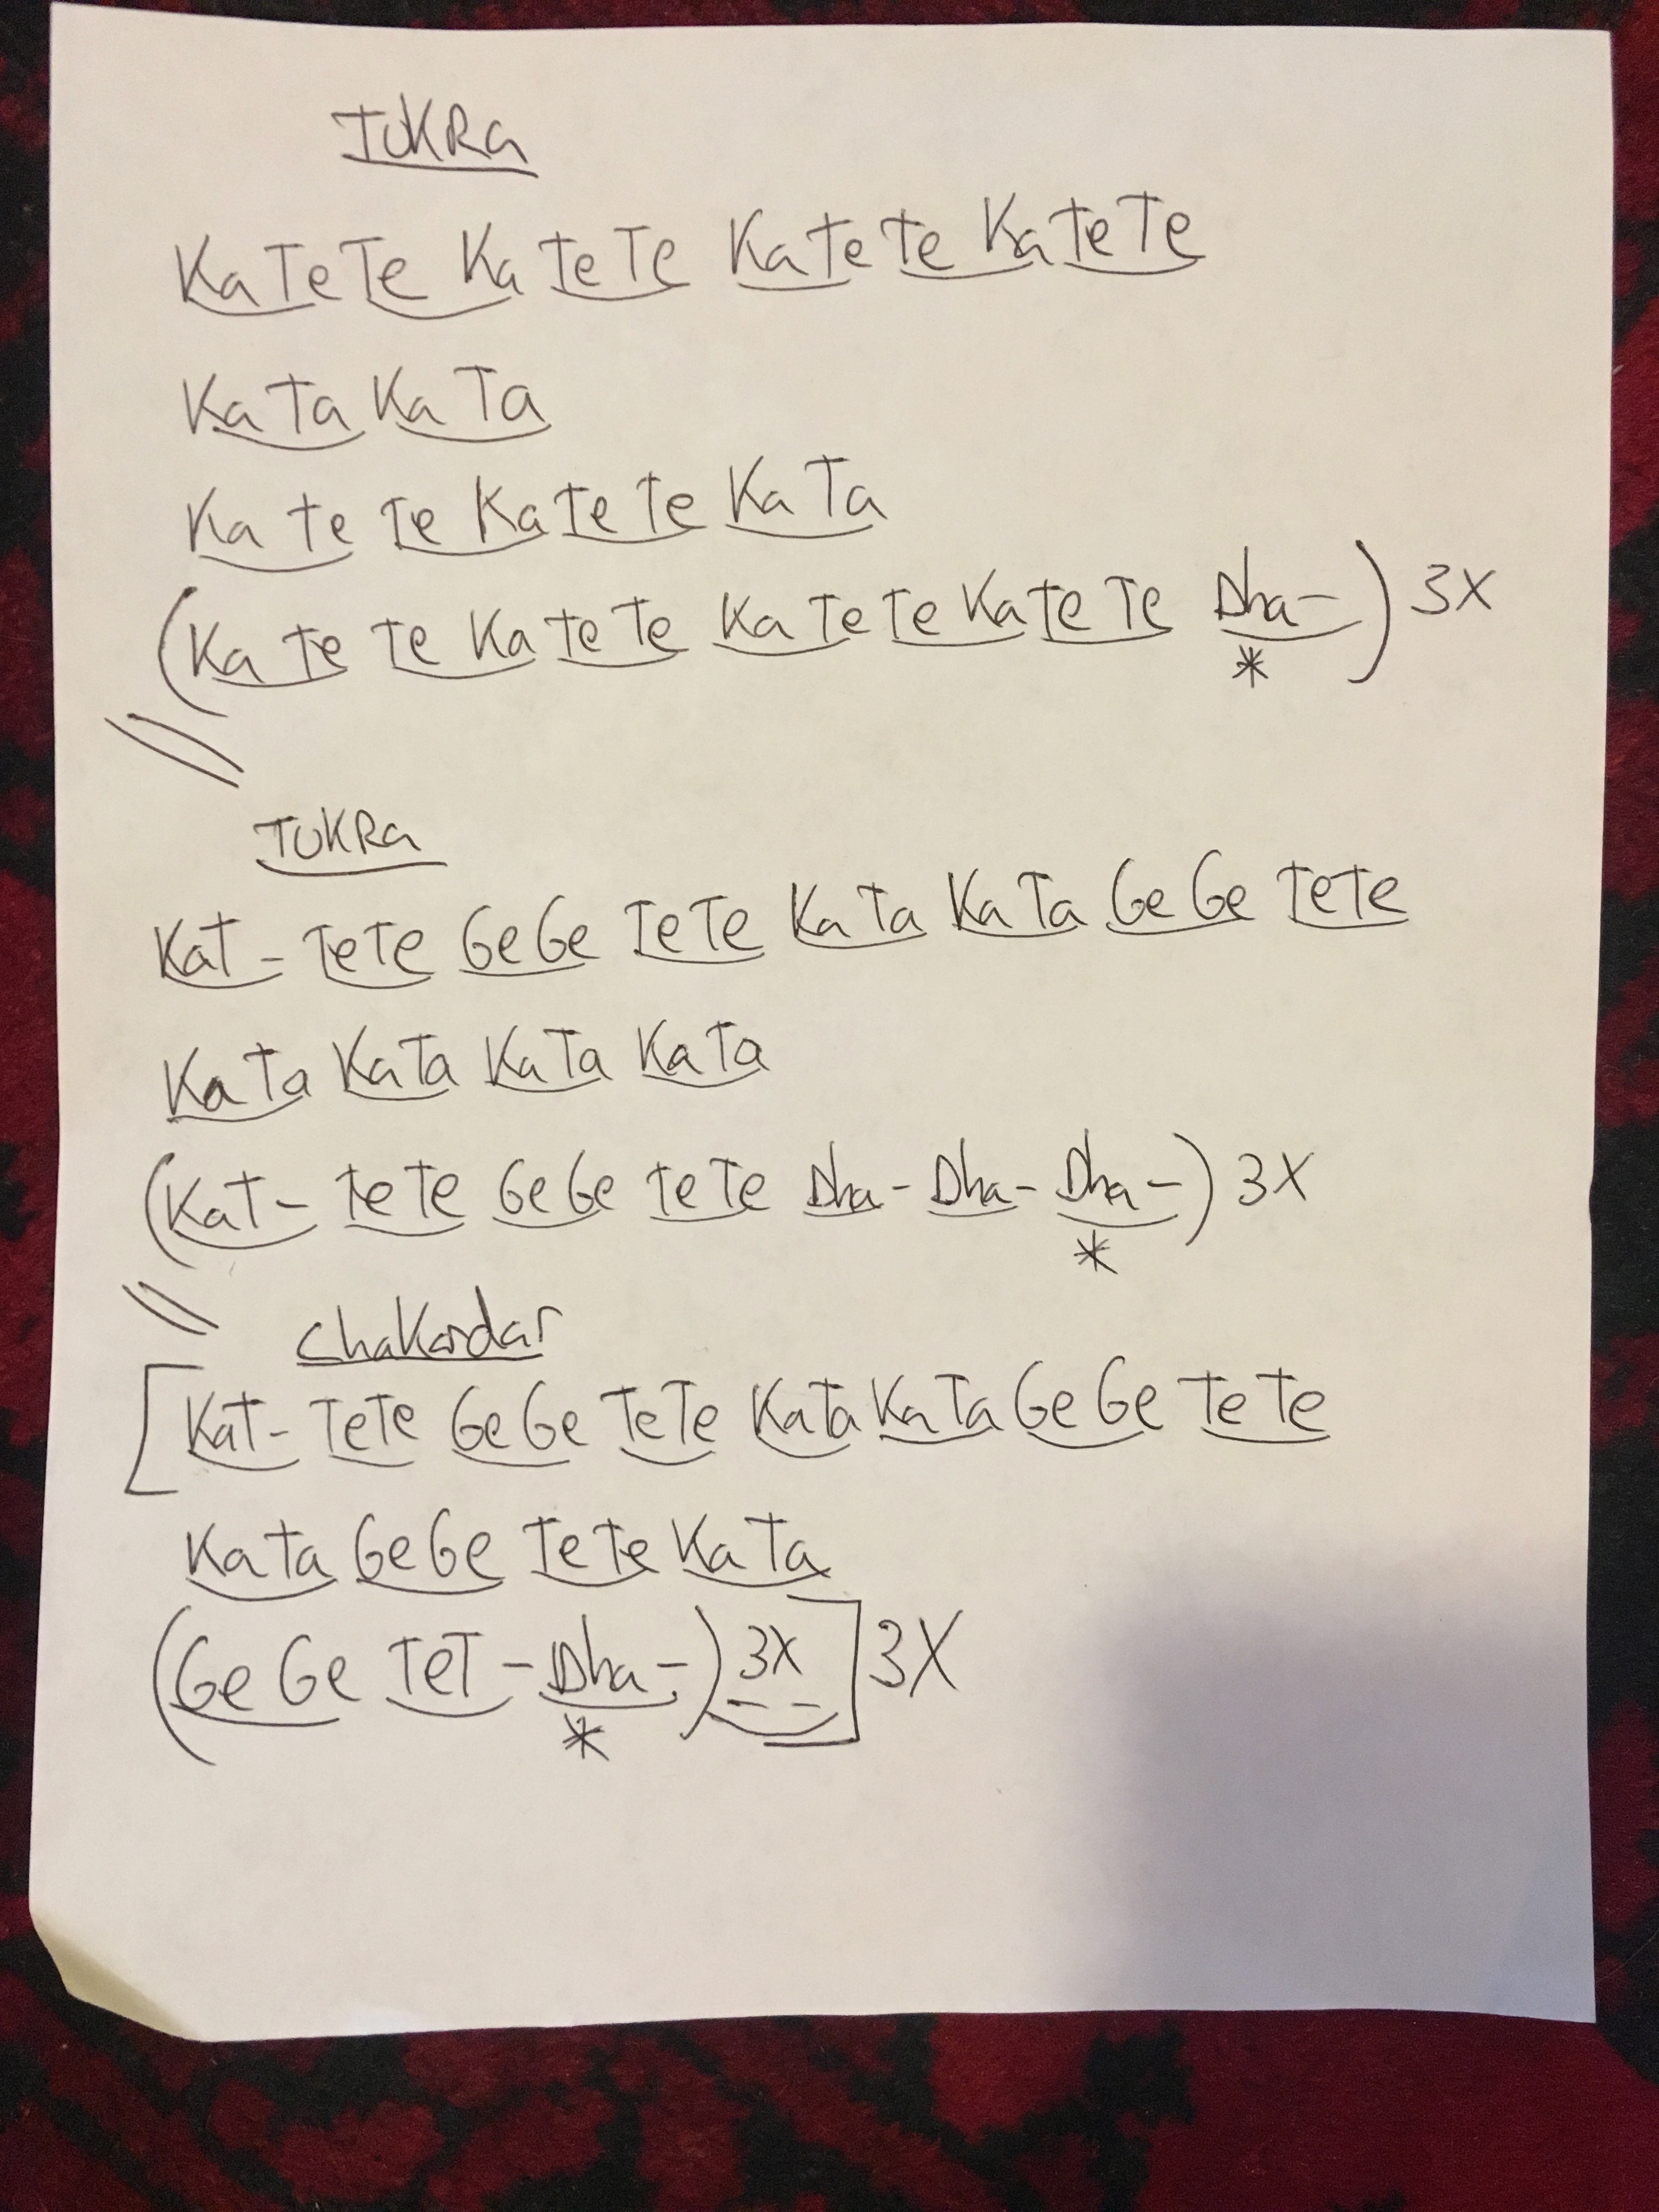 TUKRa
KaTeTe KaTeTe KaTeTe KaTeTe
KaTa KaTa
KaTeTe KaTeTe KaTa
(KaTeTe KaTeTe KaTeTe KaTeTe Dha-) 3X
*
TUKRa
KaT- TeTe GeGe TeTe KaTa KaTa GeGe TeTe
KaTa KaTa KaTa KaTa
(KaT- TeTe GeGe TeTe Dha- Dha- Dha-) 3X
*
Chakardar
[KaT- TeTe GeGe TeTe KaTa KaTa GeGe TeTe
KaTa GeGe TeTe KaTa
(GeGe TeT- Dha-) 3X - -] 3X
*